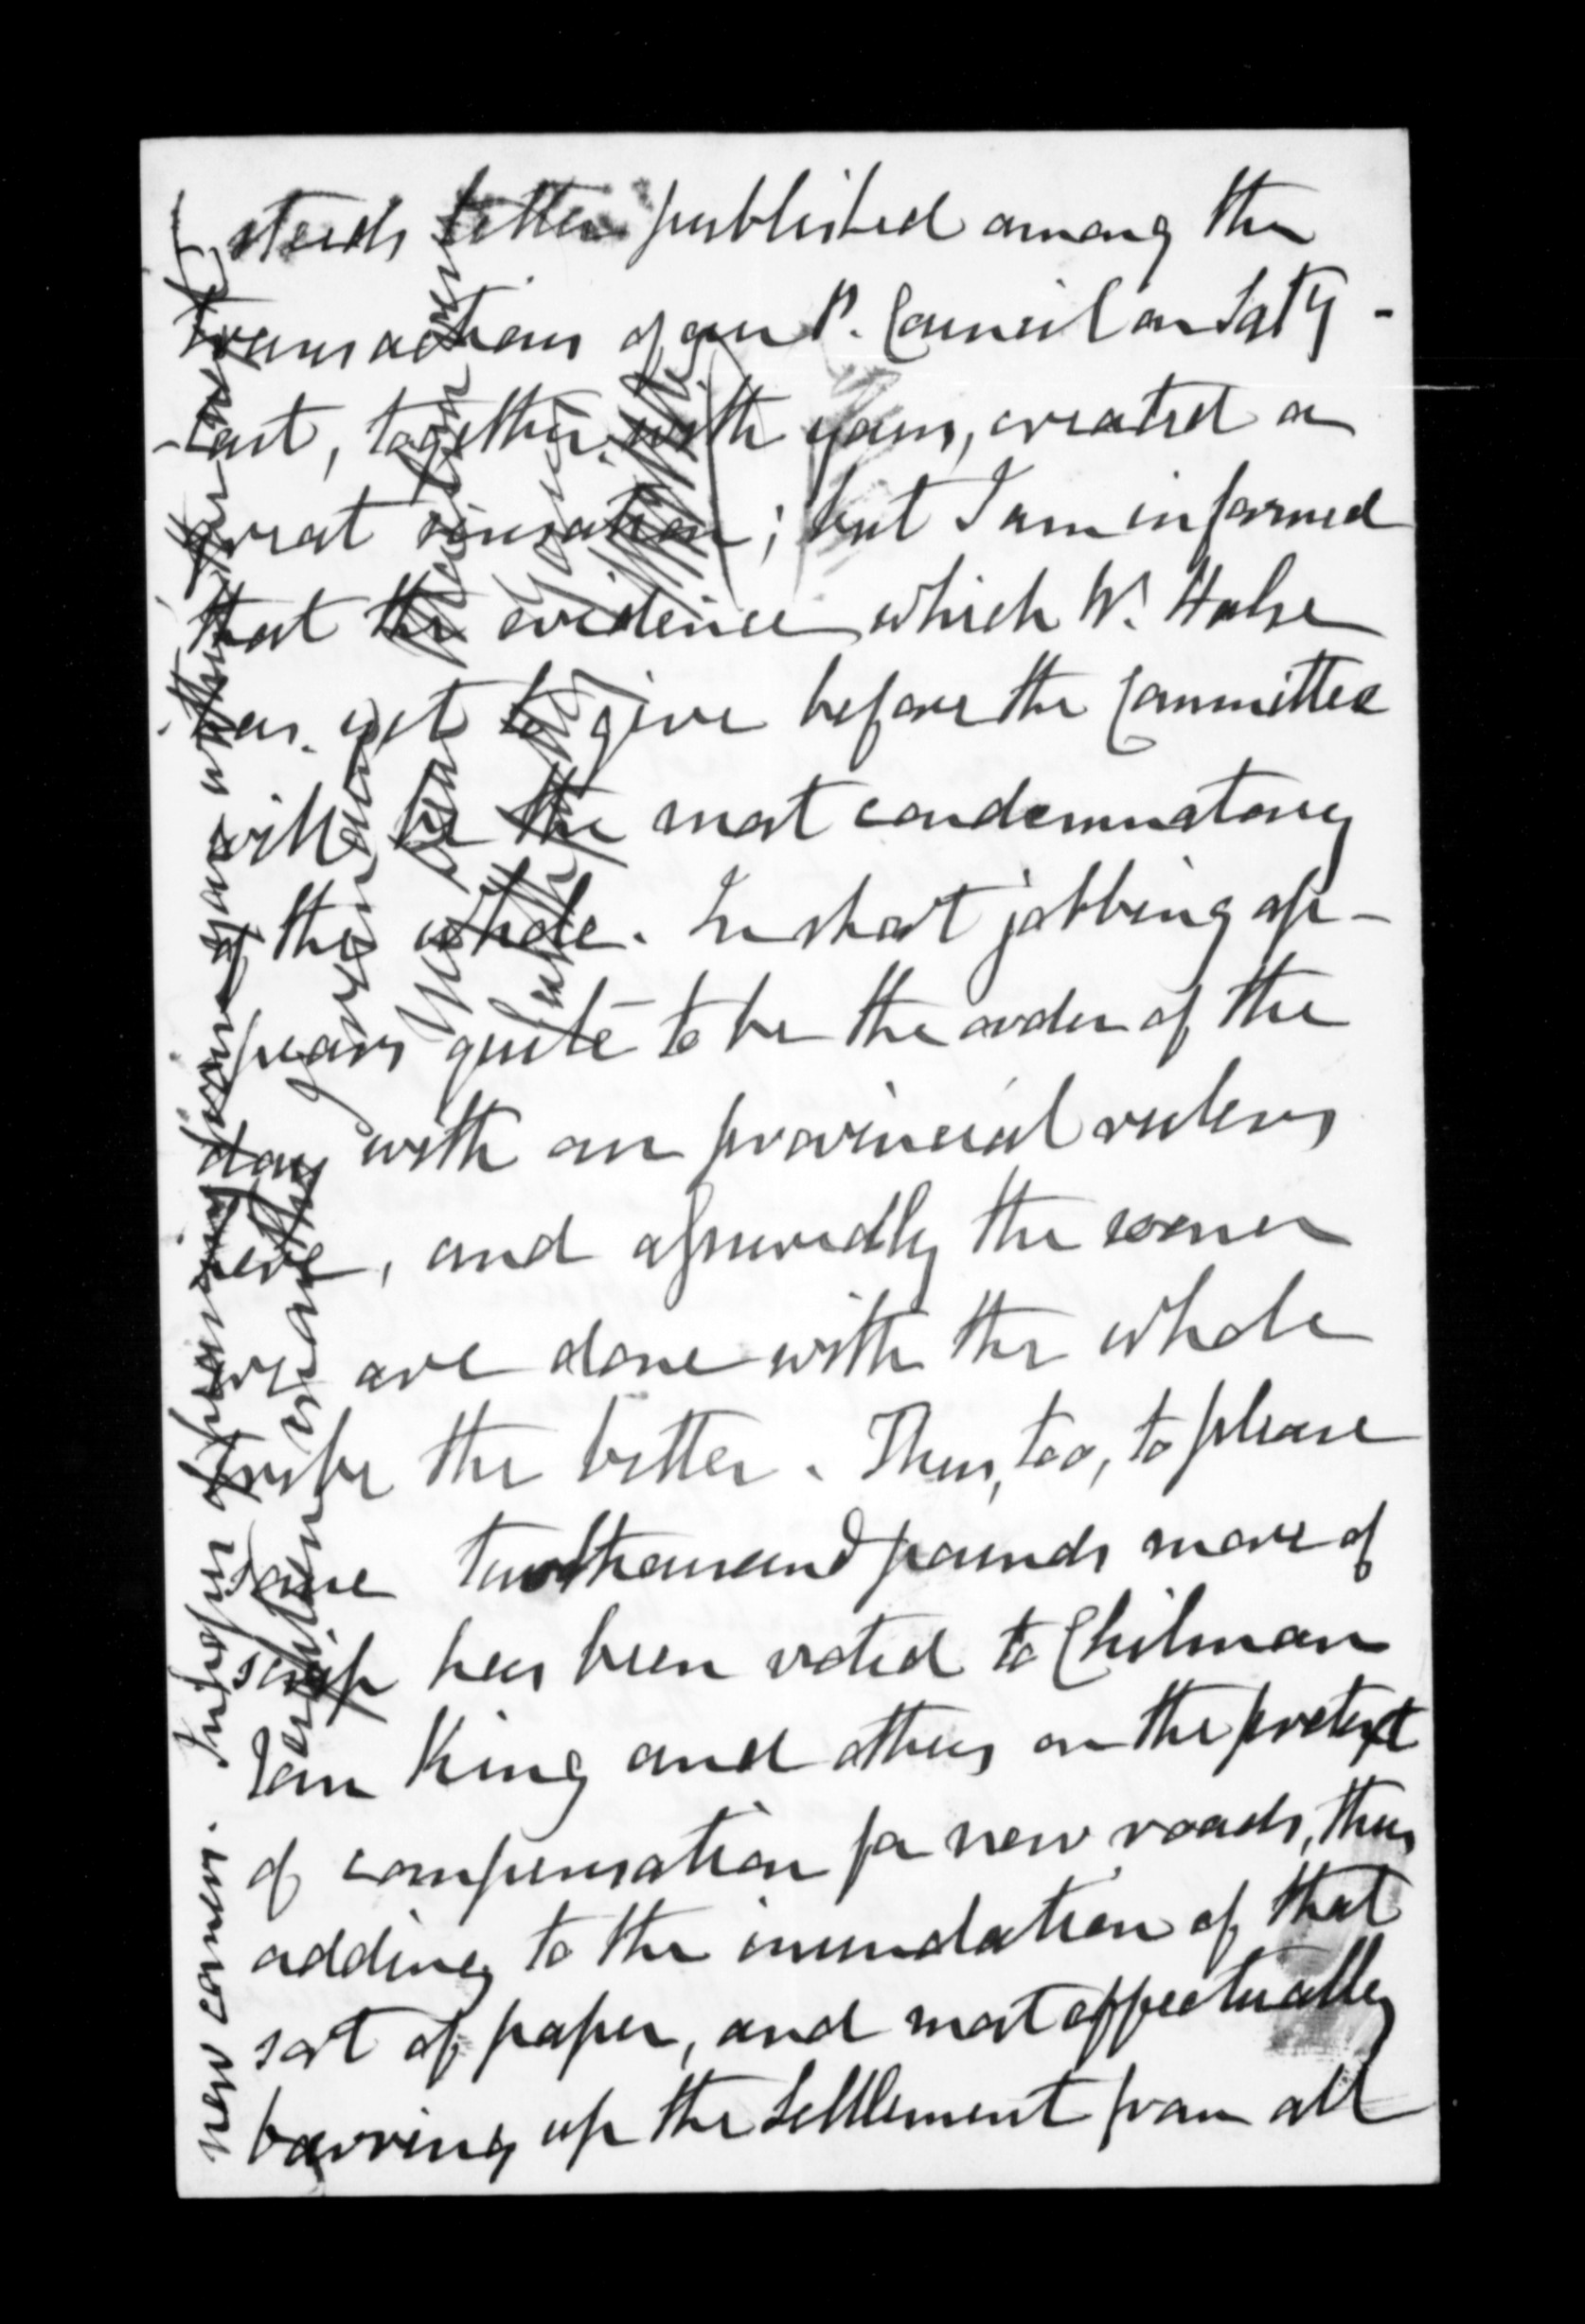 steeds letter published among the
transactions of our P. Council on Saty -
- last, together with yours, created a
great sensation; but I am informed
that the evidence which W. Halse
has yet to give before the Committee
will be the most condemnatory
of the whole. In short jobbing ap-
pears quite to be the order of the
day with our provincial rulers
here, and assuredly the sooner
we are done with the whole
tribe the better. Thus, too, to please
some two thousand pounds more of
scrip has been voted to Chilman
Tom King and others on the pretext
of compensation for new roads, thus
adding to the inundation of that
sort of paper, and most effectually
barring up the Settlement from all
new comers. In hopes of hearing from you when the
I remain
Yours